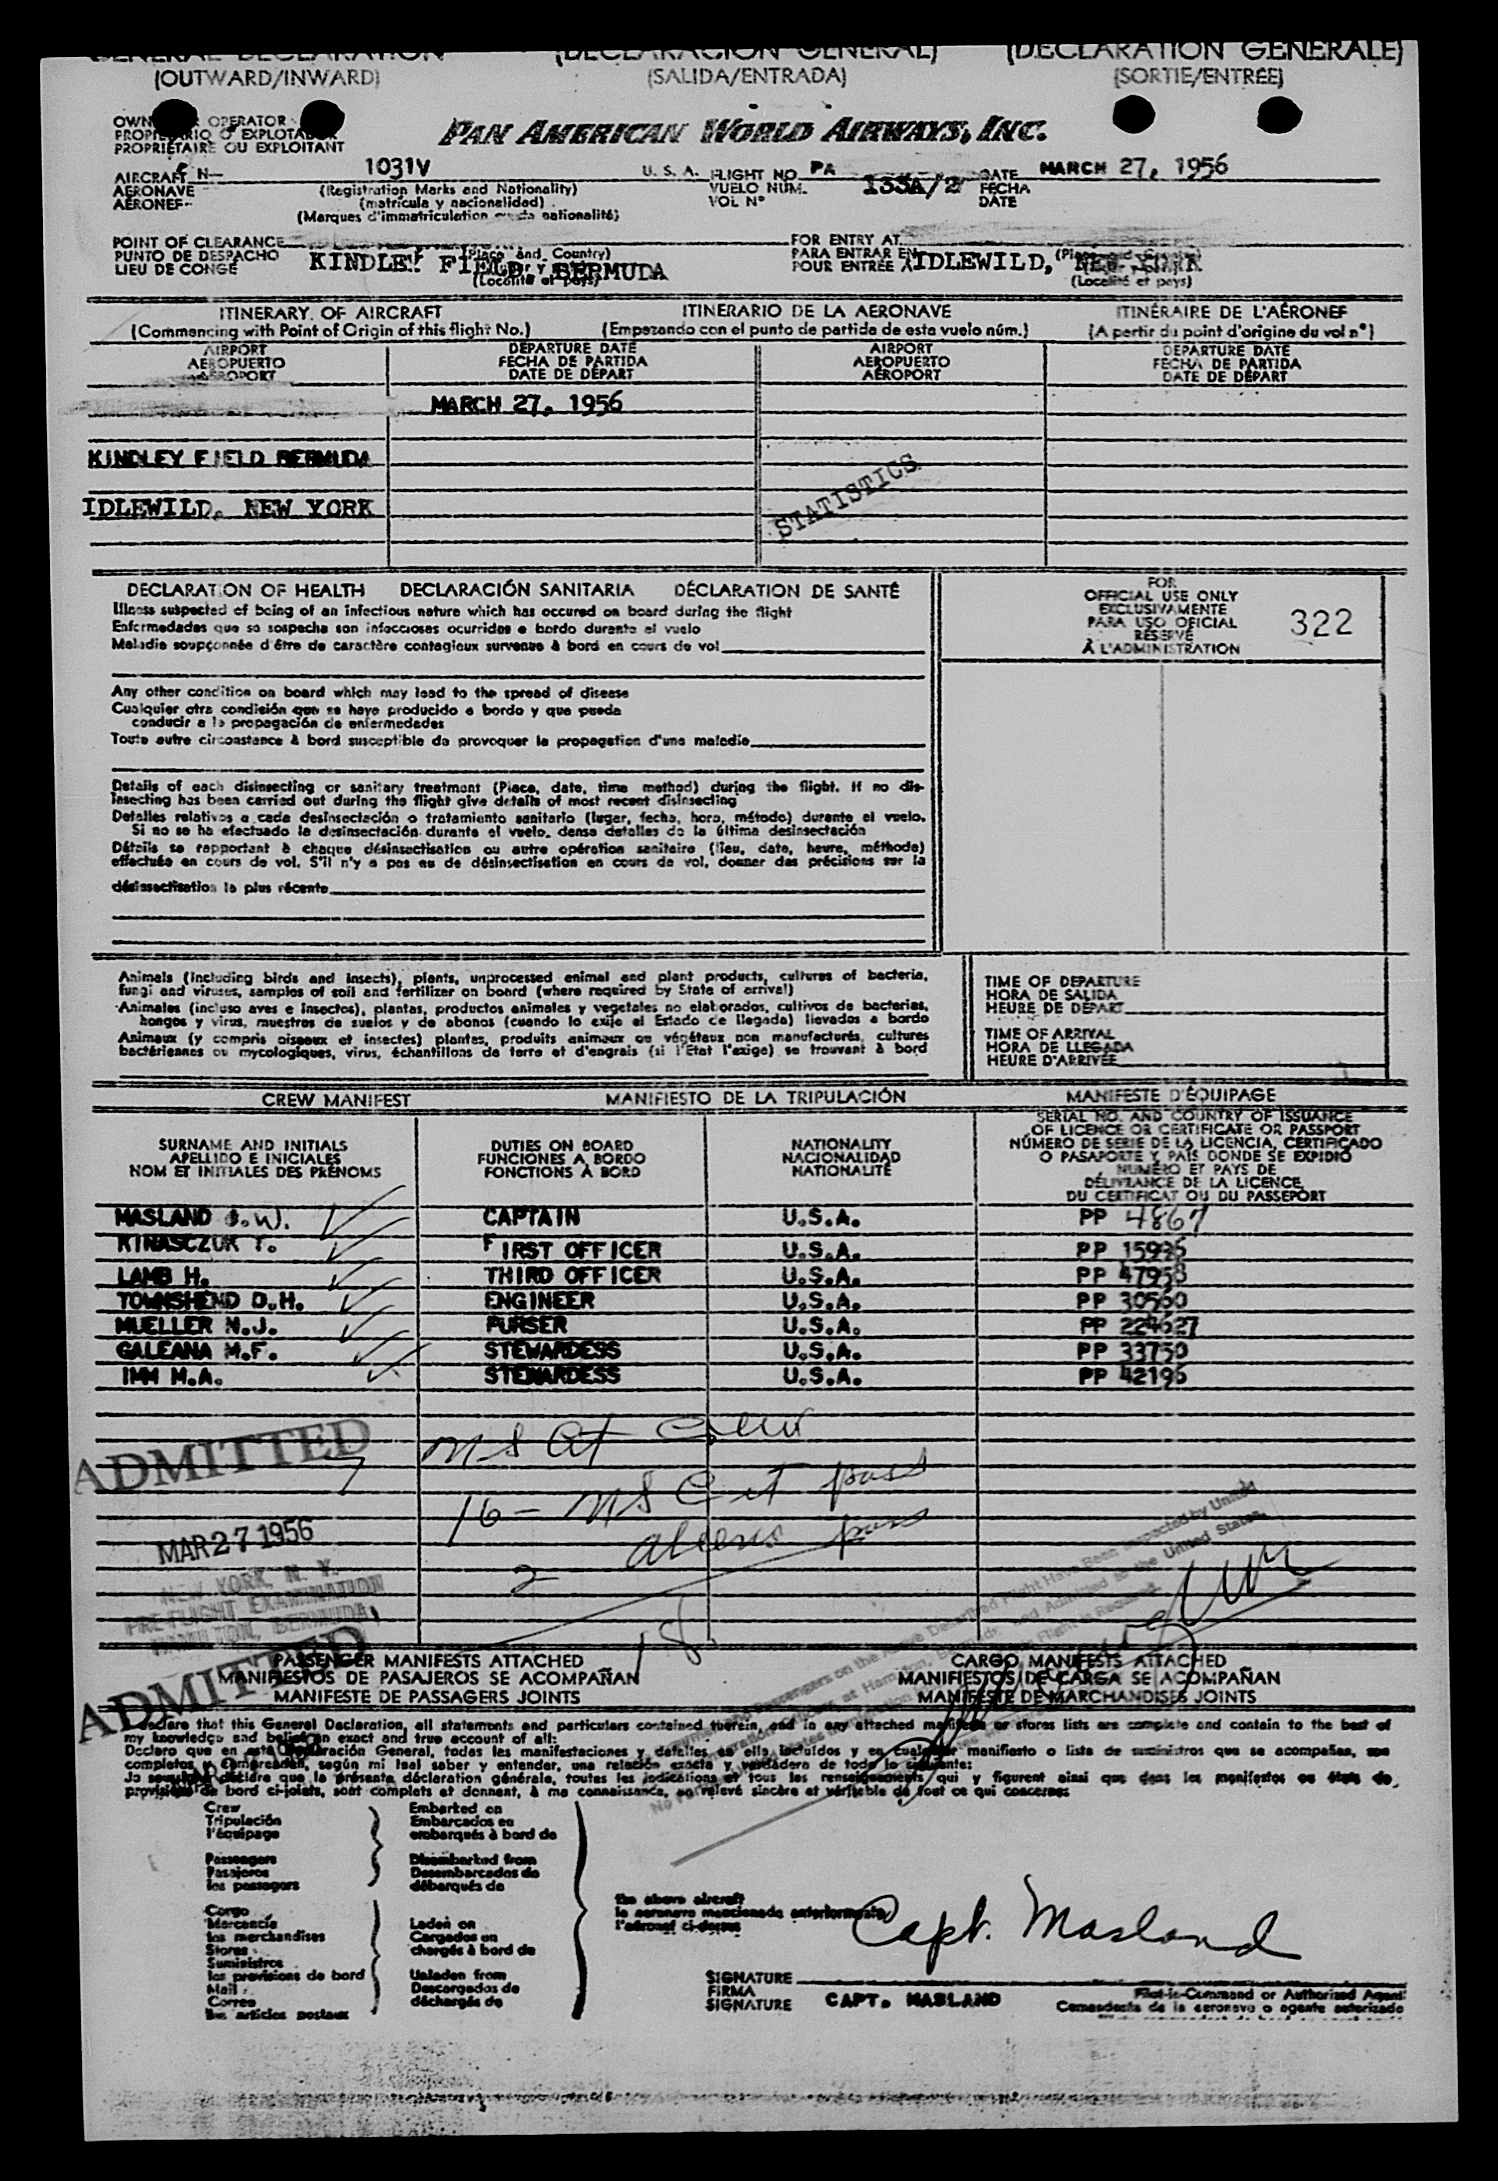 GENERAL DECLARATION (DECLARACIÓN GENERAL) (DÉCLARATION GÉNÉRALE)
(OUTWARD/INWARD) (SALIDA/ENTRADA) (SORTIE/ENTRÉE)
OPERATOR
PROPRIÉTAIRE OU EXPLOITANT
PAN AMERICAN WORLD AIRWAYS, INC.
AIRCRAFT N- 1031V U. S. A. FLIGHT NO. PA DATE MARCH 27, 1956
AERONAVE (Registration Marks and Nationality) VUELO NÚM. FECHA
AÉRONEF (matrícula y nacionalidad) VOL Nº DATE
(Marques d'immatriculation nationalité)
POINT OF CLEARANCE FOR ENTRY AT
PUNTO DE DESPACHO KINDLEY FIELD, BERMUDA PARA ENTRAR EN IDLEWILD, NEW YORK
LIEU DE CONGÉ (Localité et pays) POUR ENTRÉE À (Localité et pays)
ITINERARY OF AIRCRAFT ITINERARIO DE LA AERONAVE ITINÉRAIRE DE L'AÉRONEF
(Commencing with Point of Origin of this flight No.) (Empezando con el punto de partida de este vuelo núm.) (A partir du point d'origine du vol nº)
AIRPORT DEPARTURE DATE AIRPORT DEPARTURE DATE
AEROPUERTO FECHA DE PARTIDA AEROPUERTO FECHA DE PARTIDA
AÉROPORT DATE DE DÉPART AÉROPORT DATE DE DÉPART
MARCH 27, 1956
KINDLEY FIELD BERMUDA
STATISTICS
IDLEWILD, NEW YORK
DECLARATION OF HEALTH DECLARACIÓN SANITARIA DÉCLARATION DE SANTÉ
Illness suspected of being of an infectious nature which has occured on board during the flight
Enfermedades que se sospecha son infecciosas ocurridas a bordo durante el vuelo
Maladie soupçonnée d'être de caractère contagieux survenue à bord en cours de vol
FOR
OFFICIAL USE ONLY
EXCLUSIVAMENTE
PARA USO OFICIAL
RÉSERVÉ
À L'ADMINISTRATION
322
Any other condition on board which may lead to the spread of disease
Cualquier otra condición que se haya producido a bordo y que pueda
conducir a la propagación de enfermedades
Toute autre circonstance à bord susceptible de provoquer la propagation d'une maladie
Details of each disinsecting or sanitary treatment (Place, date, time method) during the flight. If no dis-
insecting has been carried out during the flight give details of most recent disinsecting
Detalles relativos a cada desinsectación o tratamiento sanitario (lugar, fecha, hora, método) durante el vuelo.
Si no se ha efectuado la desinsectación durante el vuelo, dense detalles de la última desinsectación
Détails se rapportant à chaque désinsectisation ou autre opération sanitaire (lieu, date, heure, méthode)
effectuée en cours de vol. S'il n'y a pas eu de désinsectisation en cours de vol, donner des précisions sur la
désinsectisation la plus récente
Animals (including birds and insects), plants, unprocessed animal and plant products, cultures of bacteria,
fungi and viruses, samples of soil and fertilizer on board (where required by State of arrival)
Animales (incluso aves e insectos), plantas, productos animales y vegetales no elaborados, cultivos de bacterias,
hongos y virus, muestras de suelos y de abonos (cuando lo exija el Estado de llegada) llevados a bordo
Animaux (y compris oiseaux et insectes) plantes, produits animaux ou végétaux non manufacturés, cultures
bactériennes ou mycologiques, virus, échantillons de terre et d'engrais (si l'Etat l'exige) se trouvant à bord
TIME OF DEPARTURE
HORA DE SALIDA
HEURE DE DÉPART
TIME OF ARRIVAL
HORA DE LLEGADA
HEURE D'ARRIVÉE
CREW MANIFEST MANIFIESTO DE LA TRIPULACIÓN MANIFESTE D'ÉQUIPAGE
SURNAME AND INITIALS
APELLIDO E INICIALES
NOM ET INITIALES DES PRÉNOMS
DUTIES ON BOARD
FUNCIONES A BORDO
FONCTIONS À BORD
NATIONALITY
NACIONALIDAD
NATIONALITÉ
SERIAL NO. AND COUNTRY OF ISSUANCE
OF LICENCE OR CERTIFICATE OR PASSPORT
NÚMERO DE SERIE DE LA LICENCIA, CERTIFICADO
O PASAPORTE Y PAÍS DONDE SE EXPIDIÓ
NUMÉRO ET PAYS DE
DÉLIVRANCE DE LA LICENCE,
DU CERTIFICAT OU DU PASSEPORT
MASLAND J.W. CAPTAIN U.S.A. PP 4867
KINASCZUK T. FIRST OFFICER U.S.A. PP
LAMB H. THIRD OFFICER U.S.A. PP 47958
TOWNSHEND D.H. ENGINEER U.S.A. PP 30560
MUELLER N.J. PURSER U.S.A. PP 224627
GALEANA M.F. STEWARDESS U.S.A. PP 33750
IMM M.A. STEWARDESS U.S.A. PP 42196
ADMITTED
7
16 -
aliens pass
2
18
MAR 27 1956
NEW YORK, N. Y.
PRE-FLIGHT EXAMINATION
HAMILTON, BERMUDA
ADMITTED
PASSENGER MANIFESTS ATTACHED CARGO MANIFESTS ATTACHED
MANIFIESTOS DE PASAJEROS SE ACOMPAÑAN MANIFIESTOS DE CARGA SE ACOMPAÑAN
MANIFESTE DE PASSAGERS JOINTS MANIFESTE DE MARCHANDISES JOINTS
declare that this General Declaration, all statements and particulars contained therein, and in any attached manifests or stores lists are complete and contain to the best of
my knowledge and belief an exact and true account of all:
Declaro que en esta Declaración General, todas las manifestaciones y detalles en ella incluídos y en cualquier manifiesto o lista de suministros que se acompañan, son
completos y comprenden, según mi leal saber y entender, una relación exacta y verdadera de todo lo siguiente:
Je soussigné déclare que la présente déclaration générale, toutes les indications et tous les renseignements qui y figurent ainsi que dans les manifestes ou états de
provisions de bord ci-joints, sont complets et donnent, à ma connaissance, un relevé sincère et véritable de tout ce qui concerne:
Crew
Tripulación
l'équipage
Passengers
Pasajeros
les passagers
Cargo
Mercancía
les marchandises
Stores
Suministros
les provisions de bord
Mail
Correo
les articles postaux
Embarked on
Embarcados en
embarqués à bord de
Disembarked from
Desembarcados de
débarqués de
Laden on
Cargados en
chargés à bord de
Unladen from
Descargados de
déchargés de
the above aircraft
la aeronave mencionada anteriormente
l'aéronef ci-dessus
Capt. Masland
SIGNATURE
FIRMA
SIGNATURE CAPT. MASLAND
Pilot-in-Command or Authorized Agent
Comandante de la aeronave o agente autorizado